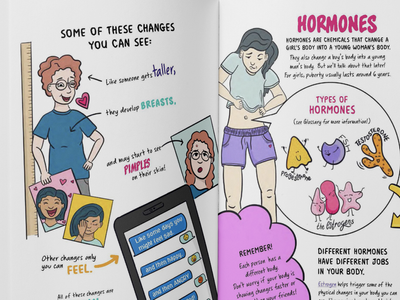 SOME OF THESE CHANGES
YOU CAN SEE:
Like someone gets taller,
they develop BREASTS,
and may start to see
PIMPLES
on their skin!
Other changes only
you can FEEL.
All of these changes are
Like some days you
might feel sad
and then happy
and then ANGRY
HORMONES
HORMONES ARE CHEMICALS THAT CHANGE A
GIRL'S BODY INTO A YOUNG WOMAN'S BODY.
They also change a boy's body into a young
man's body. But we'll talk about that later!
For girls, puberty usually lasts around 6 years.
TYPES OF
HORMONES
(see Glossary for more information!)
Progesterone
FSH
TESTOSTERONE
the Estrogens
REMEMBER!
Each person has a
different body.
Don't worry if your body is
showing changes faster or
your friends!
DIFFERENT HORMONES
HAVE DIFFERENT JOBS
IN YOUR BODY.
Estrogen helps trigger some of the
physical changes in your body you can